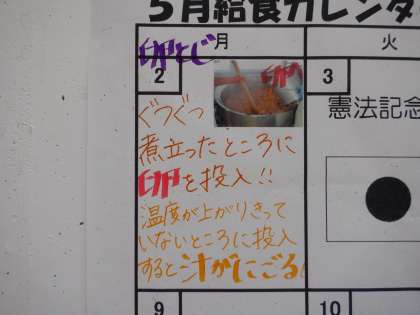 5月給食カレンダ
月 火
卵とじ
2
卵
3
ぐつぐつ
煮立ったところに
卵を投入!!
温度が上がりきって
いないところに投入
すると汁がにごる
憲法記念
9
10